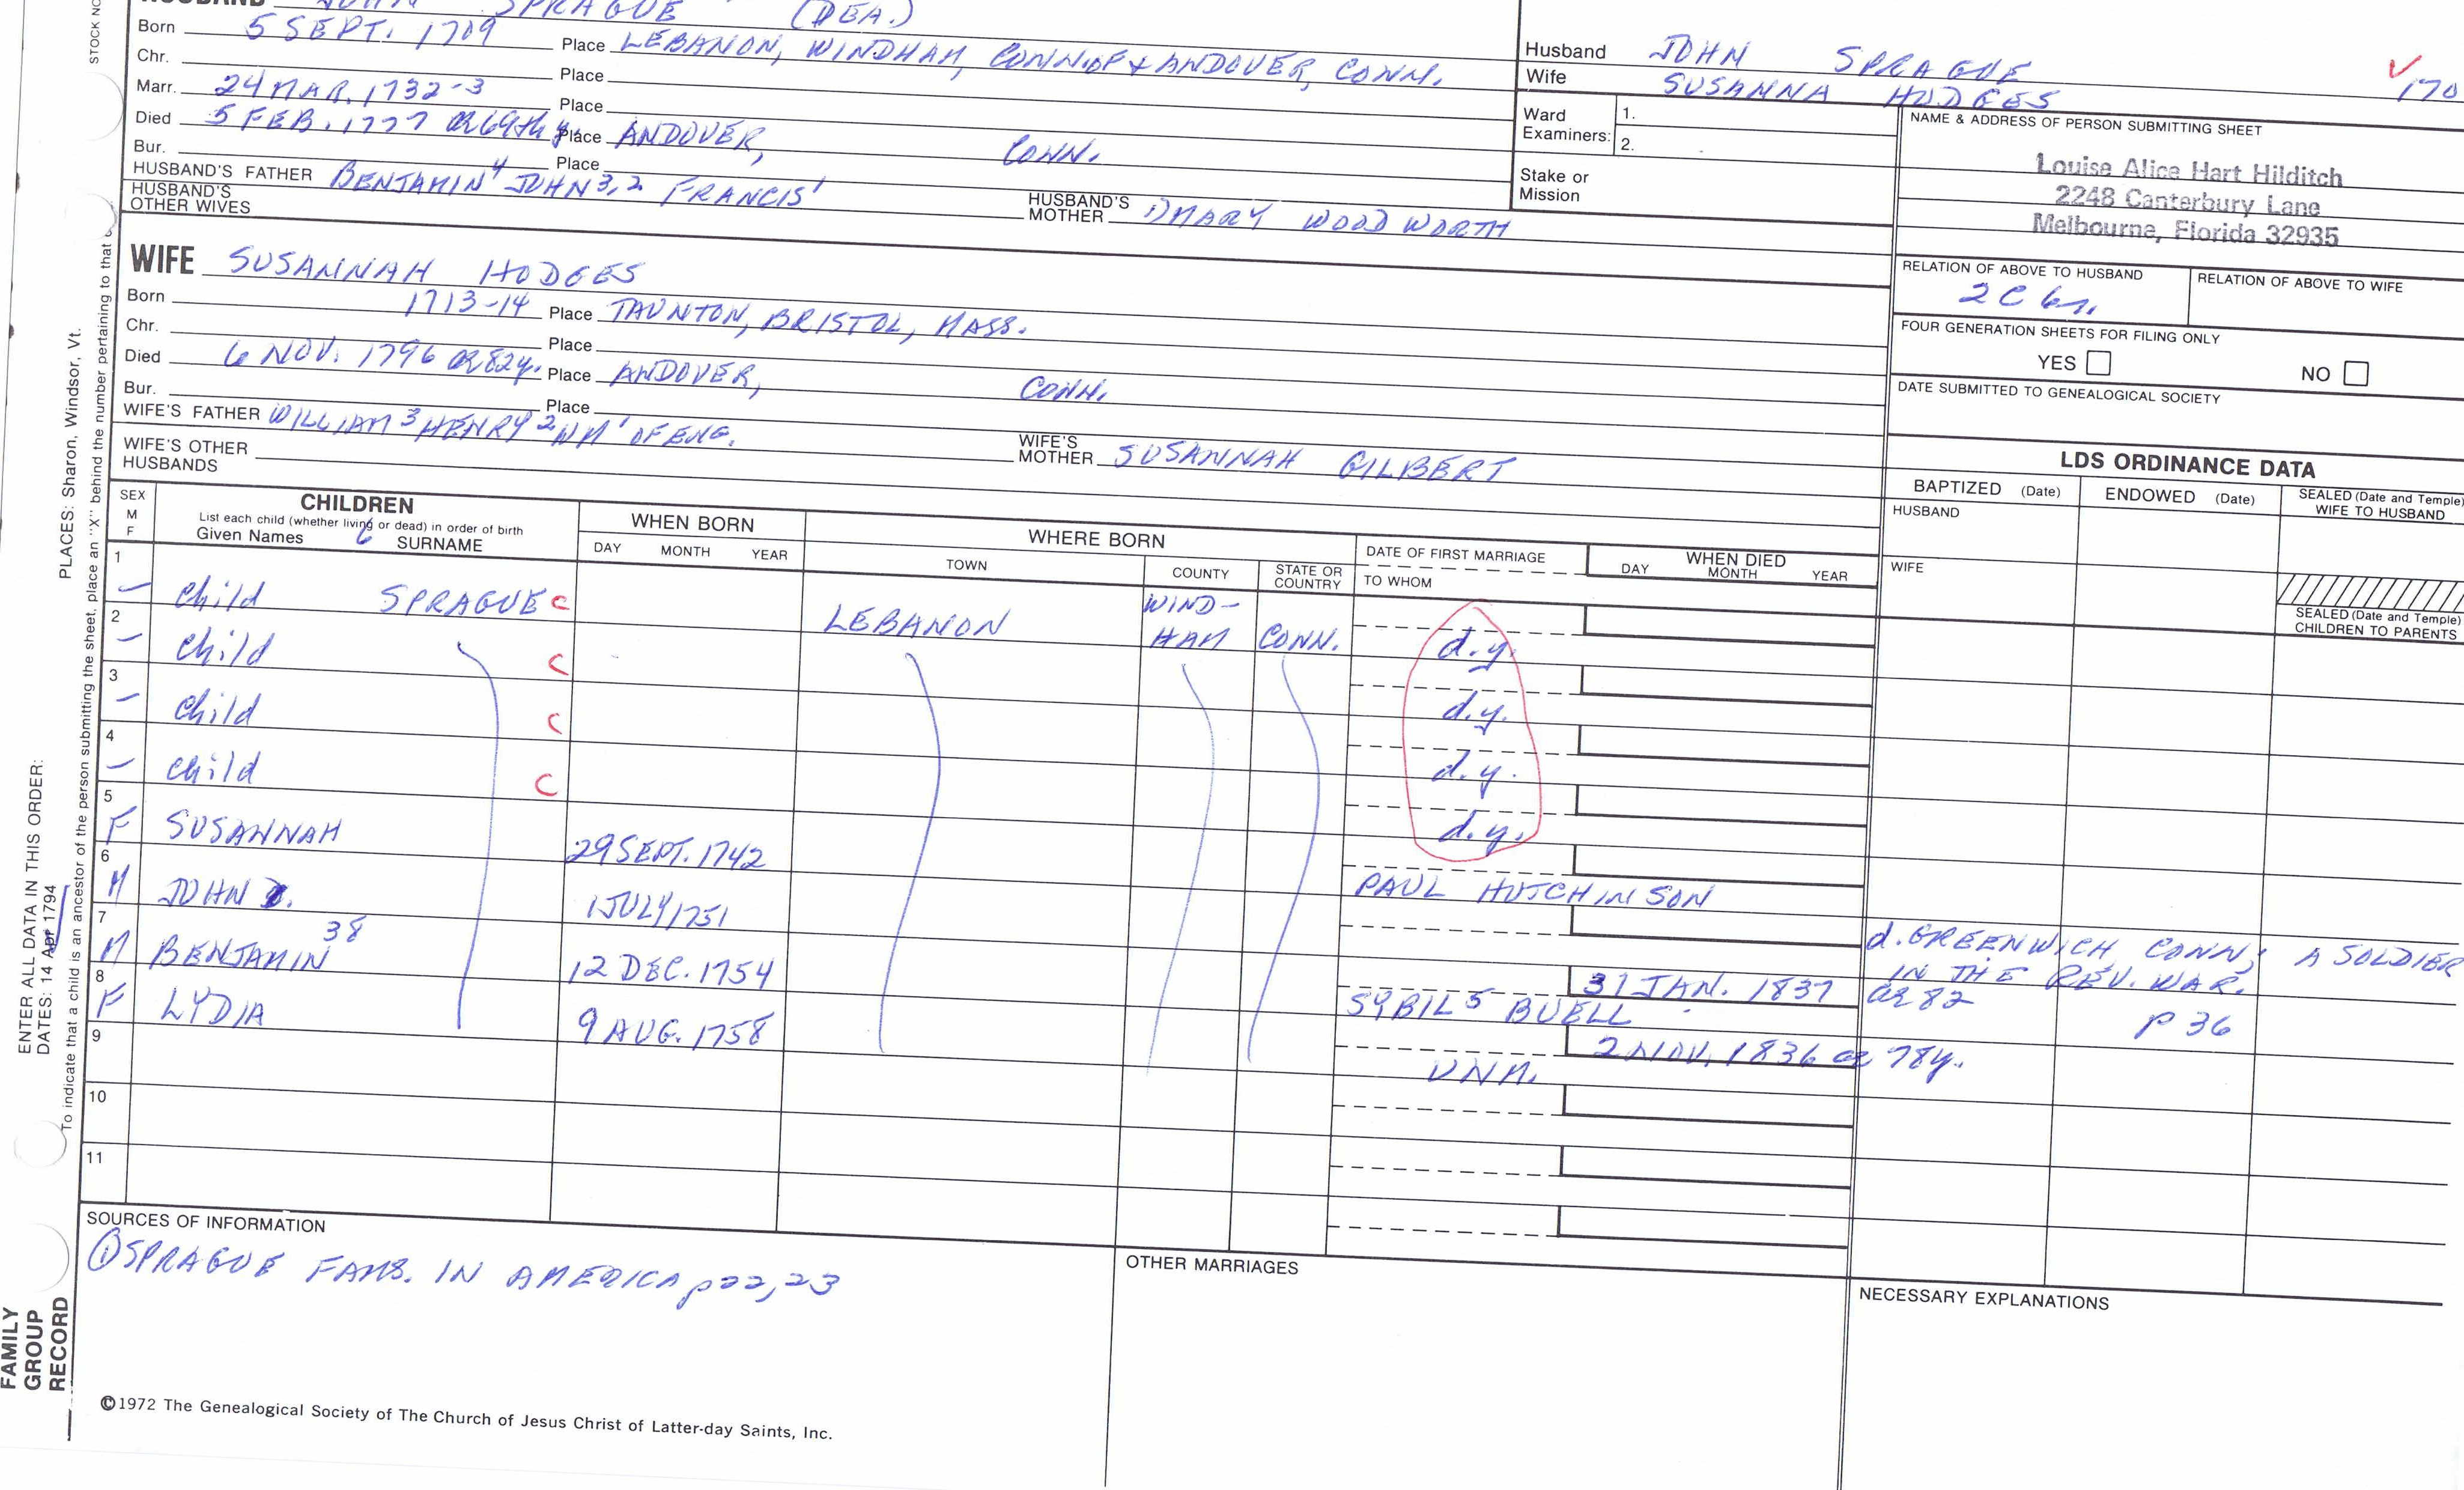 HUSBAND JOHN SPRAGUE (DEA.)
Born 5 SEPT. 1709 Place LEBANON, WINDHAM, CONN. OF & ANDOVER, CONN.
Chr. Place
Marr. 24 MAR. 1732-3 Place
Died 5 FEB. 1777 Place ANDOVER, CONN.
Bur. Place
HUSBAND'S FATHER BENJAMIN 4 JOHN 3,2 FRANCIS 1 HUSBAND'S MOTHER 1) MARY WOODWORTH
HUSBAND'S OTHER WIVES
WIFE SUSANNAH HODGES
Born 1713-14 Place TAUNTON, BRISTOL, MASS.
Chr. Place
Died 6 NOV. 1796 ae 82y. Place ANDOVER, CONN.
Bur. Place
WIFE'S FATHER WILLIAM 3 HENRY 2 WM 1 OF ENG. WIFE'S MOTHER SUSANNAH GILBERT
WIFE'S OTHER HUSBANDS
Husband JOHN SPRAGUE
Wife SUSANNA HODGES 170
Ward Examiners: 1.
2.
Stake or Mission
NAME & ADDRESS OF PERSON SUBMITTING SHEET
Louise Alice Hart Hilditch
2248 Canterbury Lane
Melbourne, Florida 32935
RELATION OF ABOVE TO HUSBAND
RELATION OF ABOVE TO WIFE
2C 6
FOUR GENERATION SHEETS FOR FILING ONLY
YES NO
DATE SUBMITTED TO GENEALOGICAL SOCIETY
LDS ORDINANCE DATA
BAPTIZED (Date) ENDOWED (Date) SEALED (Date and Temple) WIFE TO HUSBAND
HUSBAND
WIFE
SEALED (Date and Temple) CHILDREN TO PARENTS
SEX M F
CHILDREN
List each child (whether living or dead) in order of birth
Given Names 6 SURNAME
WHEN BORN
DAY MONTH YEAR
WHERE BORN
TOWN COUNTY STATE OR COUNTRY
DATE OF FIRST MARRIAGE
TO WHOM
WHEN DIED
DAY MONTH YEAR
1 – child SPRAGUE C LEBANON WIND-HAM CONN. d.y.
2 – child C d.y.
3 – child C d.y.
4 – child C d.y.
5 F SUSANNAH 29 SEPT. 1742 PAUL HUTCHINSON
6 M JOHN 1 JULY 1751
7 M BENJAMIN 38 12 DEC. 1754 SYBIL 5 BUELL 31 JAN. 1837
d. GREENWICH, CONN; A SOLDIER
IN THE REV. WAR.
ae 82 p 36
8 F LYDIA 9 AUG. 1758 UNM. 2 NOV. 1836 ae 78y.
9
10
11
SOURCES OF INFORMATION
① SPRAGUE FAMS. IN AMERICA p 22, 23
OTHER MARRIAGES
NECESSARY EXPLANATIONS
©1972 The Genealogical Society of The Church of Jesus Christ of Latter-day Saints, Inc.
FAMILY GROUP RECORD
ENTER ALL DATA IN THIS ORDER:
DATES: 14 Apr 1794
PLACES: Sharon, Windsor, Vt.
To indicate that a child is an ancestor of the person submitting the sheet, place an "X" behind the number pertaining to that
STOCK NO